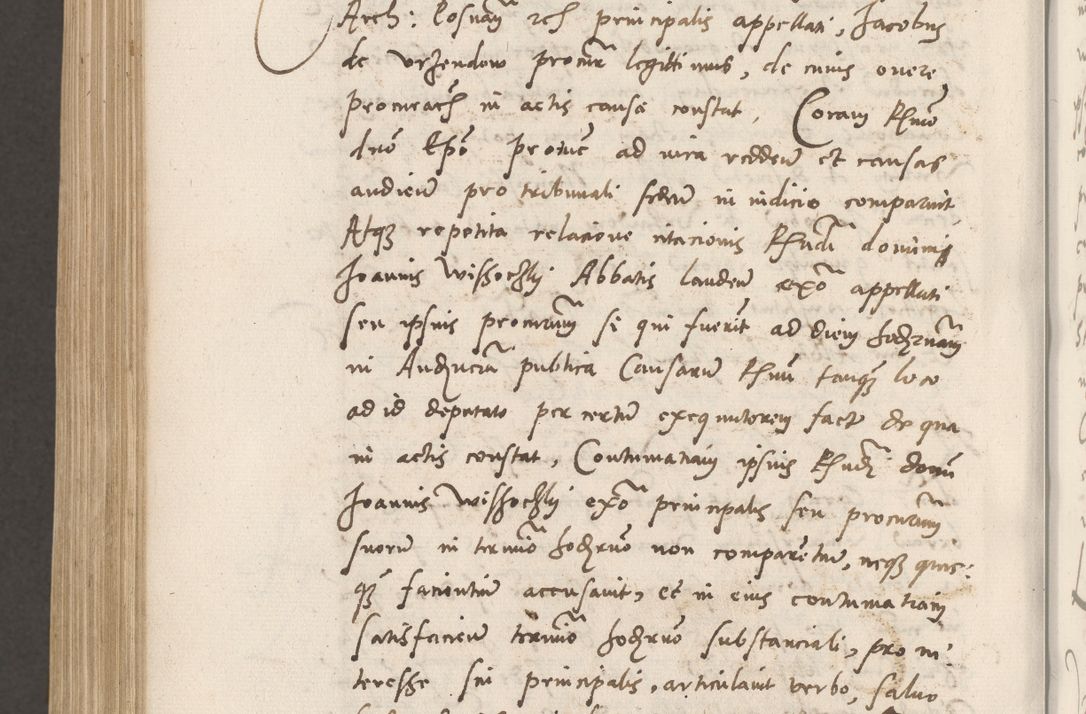 Arch: Cosnam̄ rc̃h principalis appellati, Jacobus
de Urzendow procur̃ legittimus, de cuius onere
procurac̃h in actis causæ constat, Coram Rhmo
dno Epo pronūc ad iura reddeñ et causas
audieñ pro tribunali sedeñ in iudicio comparuit
Atq3 repetita relacione citacionis Rhndi domini
Joannis Wissoczkÿ Abbatis landeñ ex̃o appellati
seu ipsius procuram̄ si qui fuerit ad diem hodzernam
in Audẓncia publica Causarũ Rhmi tanq3 loco
ad id deputato per certũ exequutorem fact de qua
in actis constat, Contumaciam ipsius Rhndi domi
Joannis Wissoczkÿ ex̃o principalis seu procuram̄
suorũ in termiño hodzerno non comparẽtiũ, neq3 quic:
q3 facientiũ accusavit, et in eius contumaciam
satisfacieñ termiño hodzerno substanciali, pro in:
teresse sui principalis, articulavit verbo, salvo